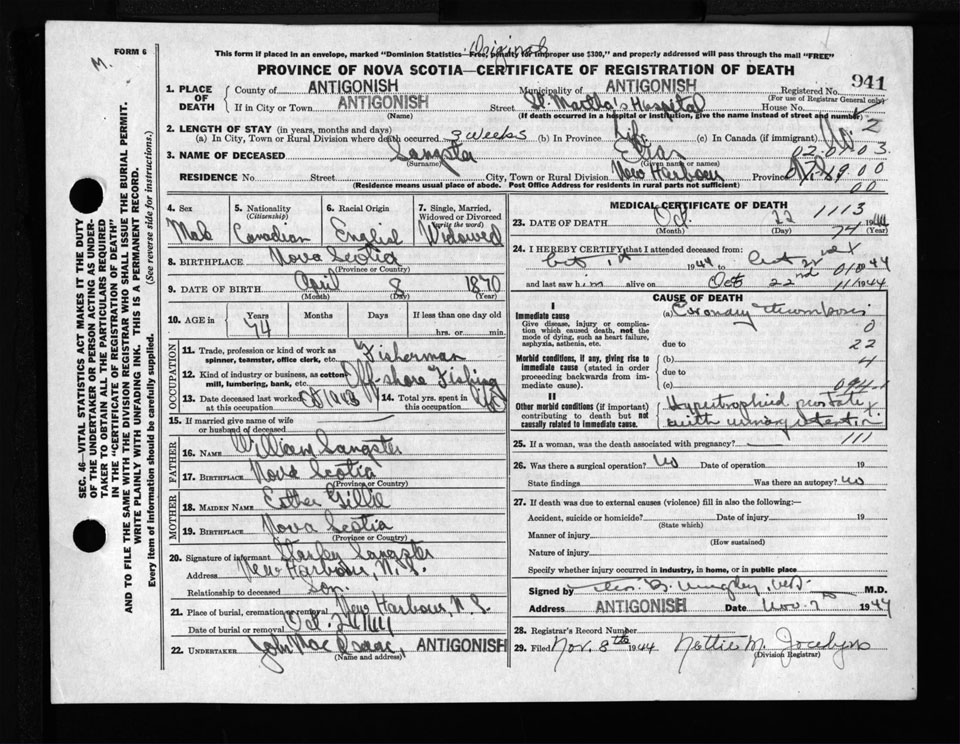 Original
FORM 6
M.
This form if placed in an envelope, marked "Dominion Statistics—Free, penalty for improper use $300," and properly addressed will pass through the mail "FREE"
PROVINCE OF NOVA SCOTIA—CERTIFICATE OF REGISTRATION OF DEATH
941
1. PLACE OF DEATH
County of ANTIGONISH Municipality of ANTIGONISH Registered No.
(For use of Registrar General only)
If in City or Town ANTIGONISH Street St. Martha's Hospital House No.
(Name) (If death occurred in a hospital or institution, give the name instead of street and number)
2
2. LENGTH OF STAY (in years, months and days)
(a) In City, Town or Rural Division where death occurred 3 weeks (b) In Province Life (c) In Canada (if immigrant)
02.0.03
3. NAME OF DECEASED Sangster Elias
(Surname) (Given name or names)
RESIDENCE No. Street City, Town or Rural Division New Harbour Province N.S.
(Residence means usual place of abode. Post Office Address for residents in rural parts not sufficient)
00
4. Sex Male
5. Nationality (Citizenship) Canadian
6. Racial Origin English
7. Single, Married, Widowed or Divorced (write the word) Widowed
8. BIRTHPLACE Nova Scotia
(Province or Country)
9. DATE OF BIRTH April 8 1870
(Month) (Day) (Year)
10. AGE in Years 74 Months Days If less than one day old
hrs. or min.
OCCUPATION
11. Trade, profession or kind of work as spinner, teamster, office clerk, etc. Fisherman
12. Kind of industry or business, as cotton mill, lumbering, bank, etc. Off-shore Fishing
13. Date deceased last worked at this occupation Oct 1943
14. Total yrs. spent in this occupation 40
15. If married give name of wife or husband of deceased
FATHER
16. NAME William Sangster
17. BIRTHPLACE Nova Scotia
(Province or Country)
MOTHER
18. MAIDEN NAME Esther Gillie
19. BIRTHPLACE Nova Scotia
(Province or Country)
20. Signature of informant Stanley Sangster
Address New Harbour, N.S.
Relationship to deceased son.
21. Place of burial, cremation or removal New Harbour N.S.
Date of burial or removal Oct. 24/44
22. UNDERTAKER John MacIsaac, ANTIGONISH
(Name and address)
MEDICAL CERTIFICATE OF DEATH
1113
23. DATE OF DEATH Oct. 22 1944
(Month) (Day) (Year)
74
24. I HEREBY CERTIFY that I attended deceased from:
Oct 1st 1944 to Oct 22nd 1944
and last saw him alive on Oct 22nd 1944
CAUSE OF DEATH
I
Immediate cause
Give disease, injury or complication which caused death, not the mode of dying, such as heart failure, asphyxia, asthenia, etc.
(a) Coronary thrombosis
0
due to 22
Morbid conditions, if any, giving rise to immediate cause (stated in order proceeding backwards from immediate cause).
(b) 4
due to
(c) 094.1
II
Other morbid conditions (if important) contributing to death but not causally related to immediate cause.
Hypertrophied prostate
with urinary retention
111
25. If a woman, was the death associated with pregnancy?
26. Was there a surgical operation? No Date of operation 19
State findings Was there an autopsy? No
27. If death was due to external causes (violence) fill in also the following:—
Accident, suicide or homicide? Date of injury 19
(State which)
Manner of injury
(How sustained)
Nature of injury
Specify whether injury occurred in industry, in home, or in public place
Signed by M.D.
Address ANTIGONISH Date Nov. 7th 1944
28. Registrar's Record Number
29. Filed Nov. 8th 1944 Nettie M. Jocelyn
(Division Registrar)
SEC. 46—VITAL STATISTICS ACT MAKES IT THE DUTY
OF THE UNDERTAKER OR PERSON ACTING AS UNDER-
TAKER TO OBTAIN ALL THE PARTICULARS REQUIRED
IN THE "CERTIFICATE OF REGISTRATION OF DEATH"
AND TO FILE THE SAME WITH THE DIVISION REGISTRAR WHO SHALL ISSUE THE BURIAL PERMIT.
WRITE PLAINLY WITH UNFADING INK. THIS IS A PERMANENT RECORD.
Every item of information should be carefully supplied. (See reverse side for instructions.)